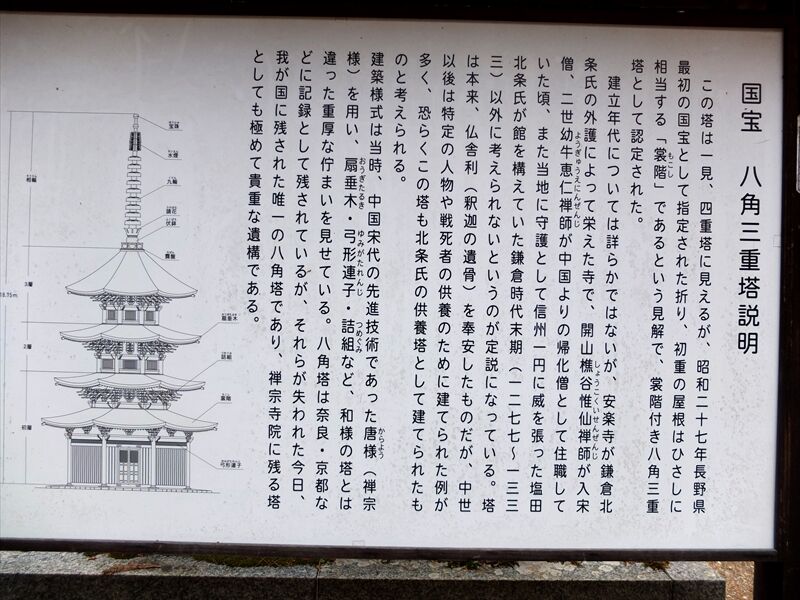 国宝　八角三重塔説明
この塔は一見、四重塔に見えるが、昭和二十七年長野県
最初の国宝として指定された折り、初重の屋根はひさしに
相当する「裳階」であるという見解で、裳階付き八角三重
もこし
塔として認定された。
建立年代については詳らかではないが、安楽寺が鎌倉北
条氏の外護によって栄えた寺で、開山樵谷惟仙禅師が入宋
しょうこくいせんぜんじ
僧、二世幼牛恵仁禅師が中国よりの帰化僧として住職して
ようぎゅうえにんぜんじ
いた頃、また当地に守護として信州一円に威を張った塩田
北条氏が館を構えていた鎌倉時代末期（一二七七〜一三三
三）以外に考えられないというのが定説になっている。塔
は本来、仏舎利（釈迦の遺骨）を奉安したものだが、中世
以後は特定の人物や戦死者の供養のために建てられた例が
多く、恐らくこの塔も北条氏の供養塔として建てられたも
のと考えられる。
建築様式は当時、中国宋代の先進技術であった唐様（禅宗
からよう
様）を用い、扇垂木・弓形連子・詰組など、和様の塔とは
おうぎたるき
ゆみがたれんじ
つめぐみ
違った重厚な佇まいを見せている。八角塔は奈良・京都な
どに記録として残されているが、それらが失われた今日、
我が国に残された唯一の八角塔であり、禅宗寺院に残る塔
としても極めて貴重な遺構である。
宝珠
水煙
九輪
請花
伏鉢
露盤
相輪
3層
18.75m
扇垂木
2層
詰組
裳階
初層
弓形連子